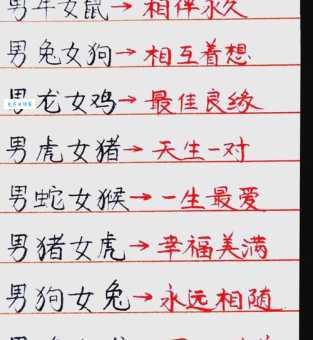 男牛女鼠→相伴永久
男兔女狗→相互着想
男龙女鸡→最佳良缘
男虎女猪→天生一对
男蛇女猴→一生最爱
男猪女虎→幸福美满
男狗女兔→永远相随